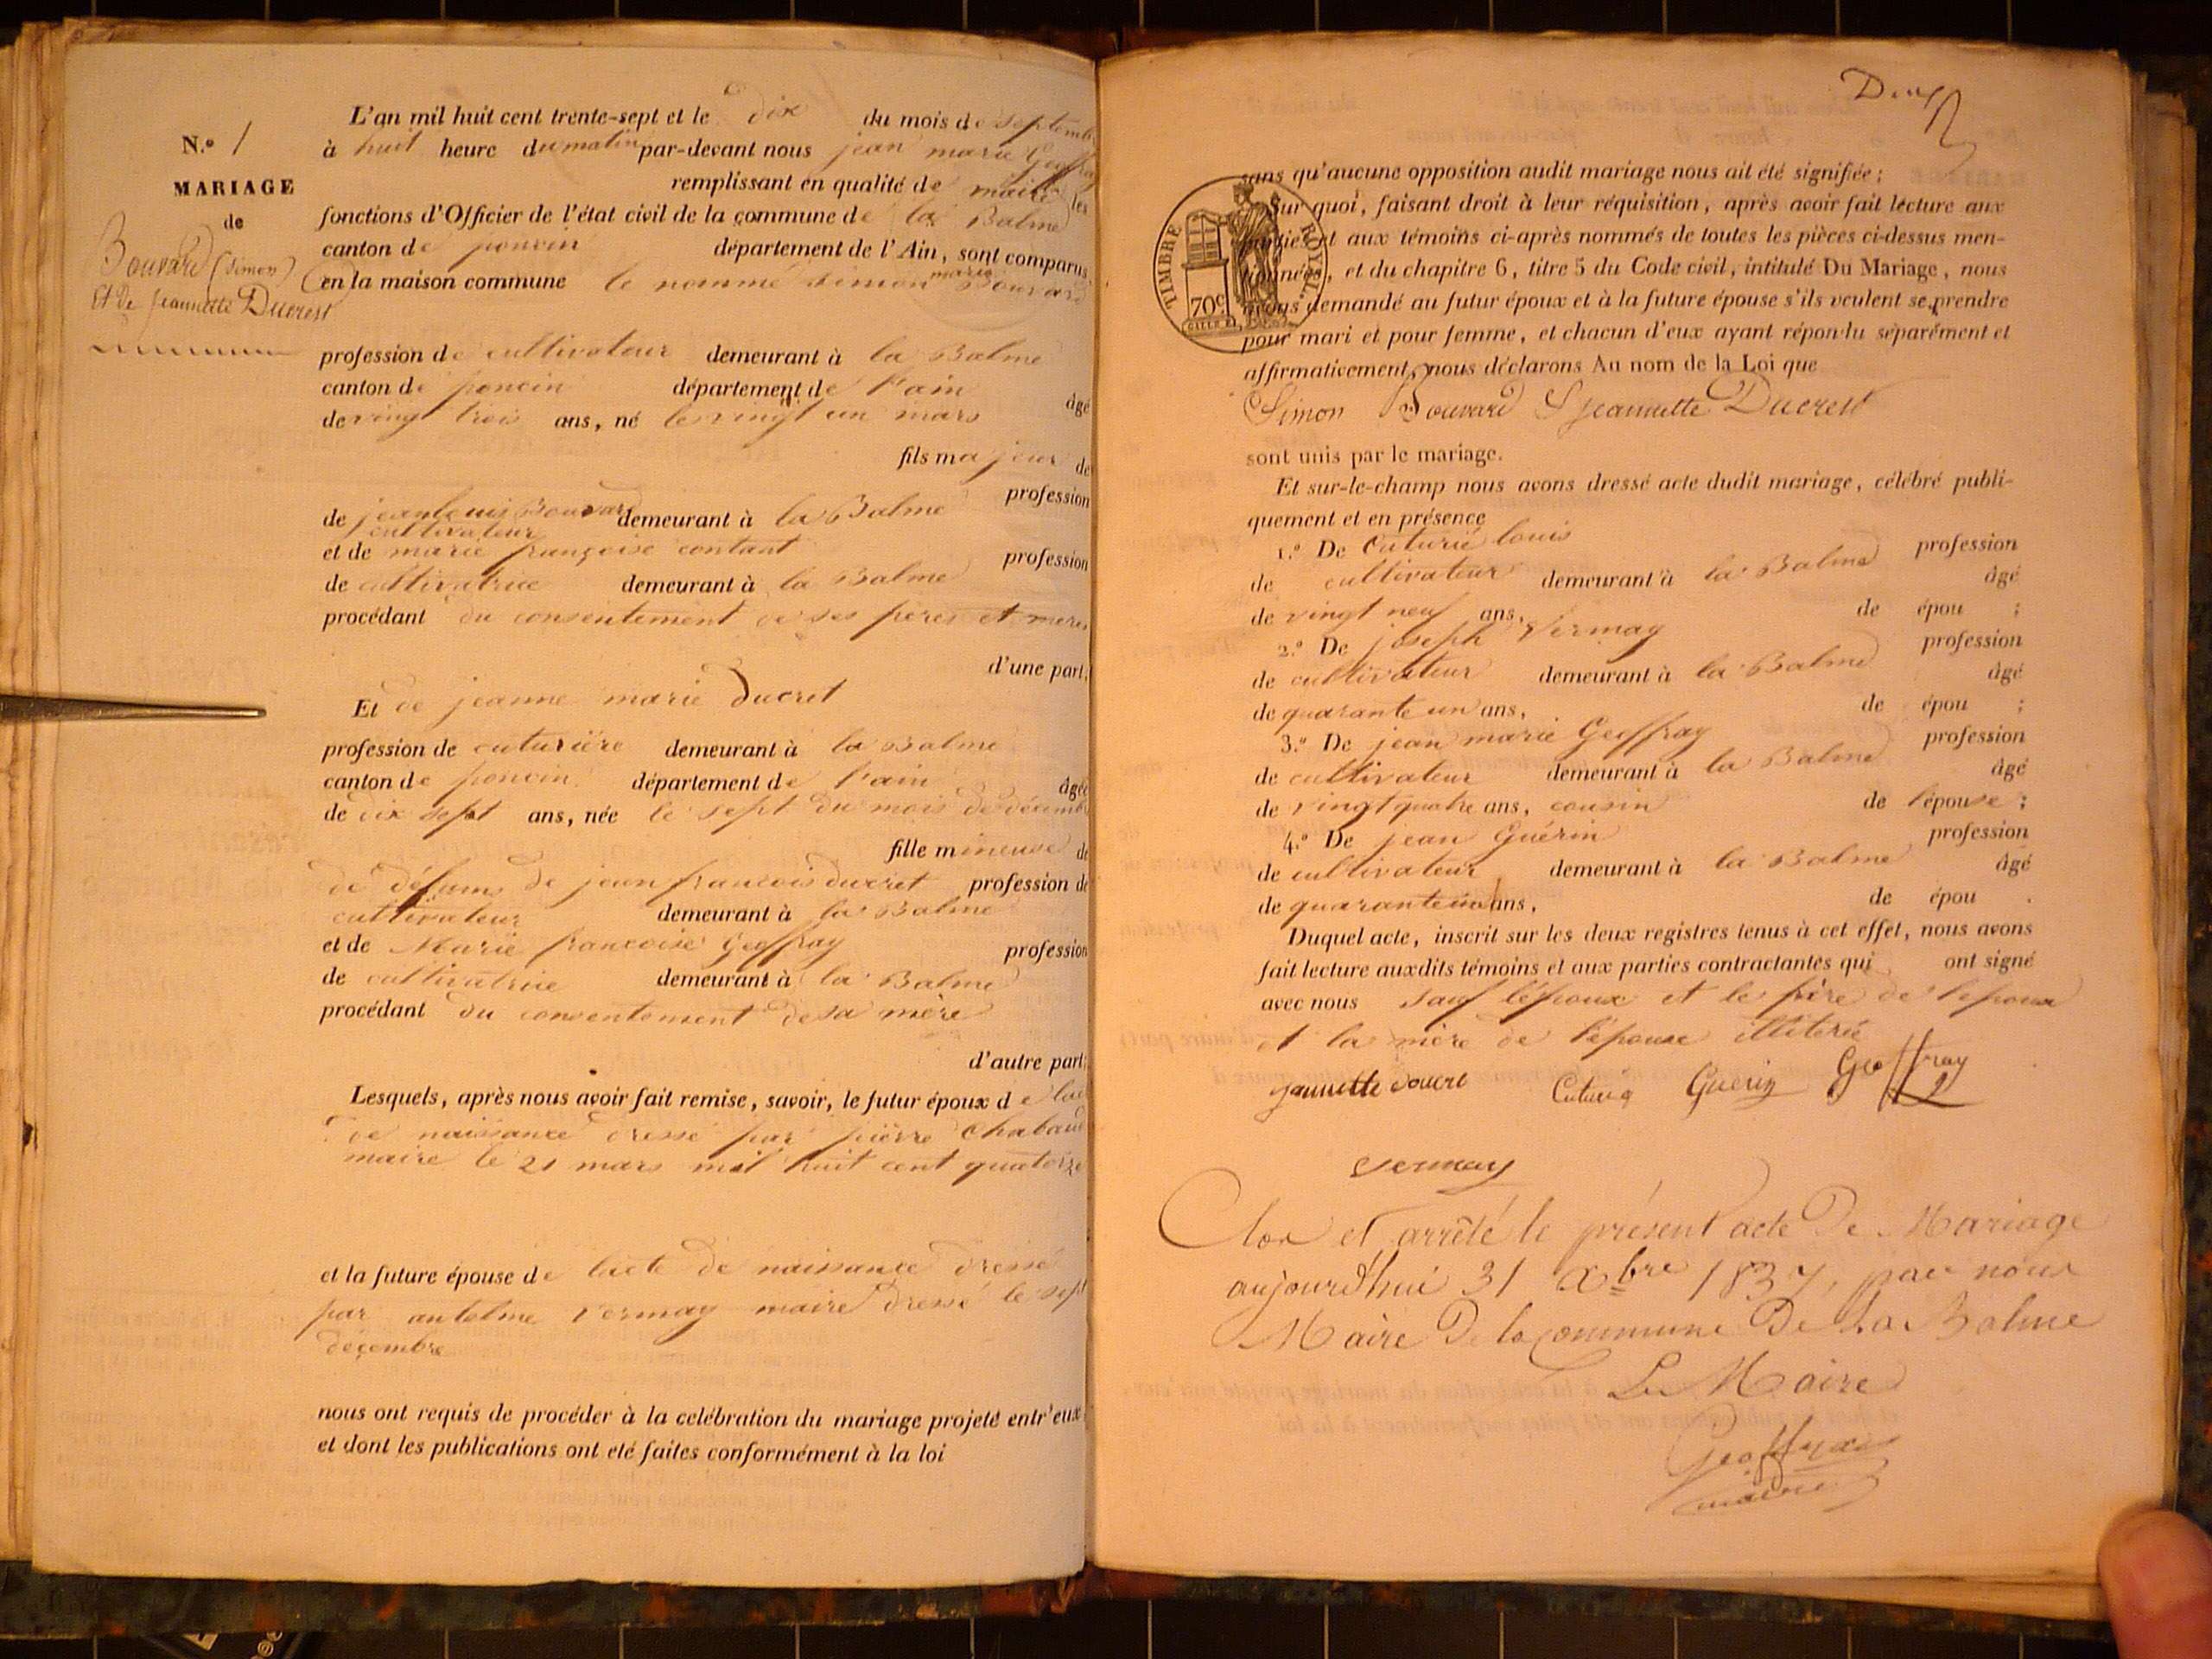 N.º 1
MARIAGE
de
Bouvard (Simon)
Et de Jeannette Ducrest
L'an mil huit cent trente-sept et le dix du mois de septemb
à huit heure du matin par-devant nous jean marie Geoffray
remplissant en qualité de maire les
fonctions d'Officier de l'état civil de la commune de la Balme
canton de poncin département de l'Ain, sont comparus
en la maison commune le nommé simon marie Bouvard
profession de cultivateur demeurant à la Balme
canton de poncin département de l'ain
âgé
de vingt trois ans, né le vingt un mars
fils majeur de
profession
de jean louis Bouvard demeurant à la Balme
cultivateur
et de marie françoise contant profession
de cultivatrice demeurant à la Balme
procédant du consentement de ses peres et meres
d'une part;
Et de jeanne marie ducret
profession de cuturière demeurant à la Balme
canton de poncin département de l'ain âgée
de dix sept ans, née le sept du mois de décemb
fille mineuse de
de défunt de jean francois ducret profession de
cultivateur demeurant à la Balme
et de Marie francoise Geoffray profession
de cultivatrice demeurant à la Balme
procédant du consentement de sa mère
d'autre part;
Lesquels, après nous avoir fait remise, savoir, le futur époux de
de naissance dressé par pierre Chabaud
maire le 21 mars mil huit cent quatorze
et la future épouse de lacte de naissance dressé
par antelme vermay maire dressé le sept
décembre
nous ont requis de procéder à la celébration du mariage projeté entr'eux
et dont les publications ont eté faites conformément à la loi
sans qu'aucune opposition audit mariage nous ait été signifiée;
TIMBRE ROYAL.
70c
Sur quoi, faisant droit à leur réquisition, après avoir fait lecture aux
parties et aux témoins ci-après nommés de toutes les pièces ci-dessus men-
tionnées, et du chapitre 6, titre 5 du Code civil, intitulé Du Mariage, nous
avons demandé au futur époux et à la future épouse s'ils veulent se prendre
pour mari et pour femme, et chacun d'eux ayant répondu séparément et
affirmativement, nous déclarons Au nom de la Loi que
Simon Bouvard & Jeannette Ducrest
sont unis par le mariage.
Et sur-le-champ nous avons dressé acte dudit mariage, célébré publi-
quement et en présence
1.º De Cuturié louis profession
de cultivateur demeurant à la Balme âgé
de vingt neuf ans, de épou ;
2.º De joseph Vermay profession
de cultivateur demeurant à la Balme âgé
de quarante un ans, de épou ;
3.º De jean marie Geoffray profession
de cultivateur demeurant à la Balme âgé
de vingt quatre ans, cousin de l'épouse ;
4.º De jean Guérin profession
de cultivateur demeurant à la Balme âgé
de quarante ans, de épou .
Duquel acte, inscrit sur les deux registres tenus à cet effet, nous avons
fait lecture auxdits témoins et aux parties contractantes qui ont signé
avec nous sauf l'époux et le père de lepoux
et la mère de l'épouse illiterée
jannette ducret Cuturié Guerin Geoffray
vermay
Clos et arrêté le présent acte De Mariage
aujourd'hui 31 Xbre 1837, par nous
Maire De la Commune De La Balme
Le Maire
Geoffray
maire